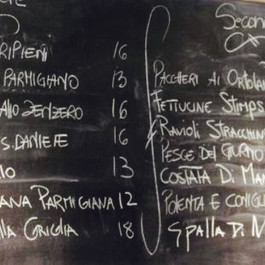 RIPIENI 16
PARMIGIANO 13
ZENZERO 16
S. DANIELE 16
13
PARMIGIANA 12
GRIGLIA 18
Secon
PACCHERI AI ORTOLAN
FETTUCINE STIMPS
RAVIOLI STRACCHIN
PESCE DEL GIORNO
COSTATA DI MAN
POLENTA E CONIGL
SPALLA DI M